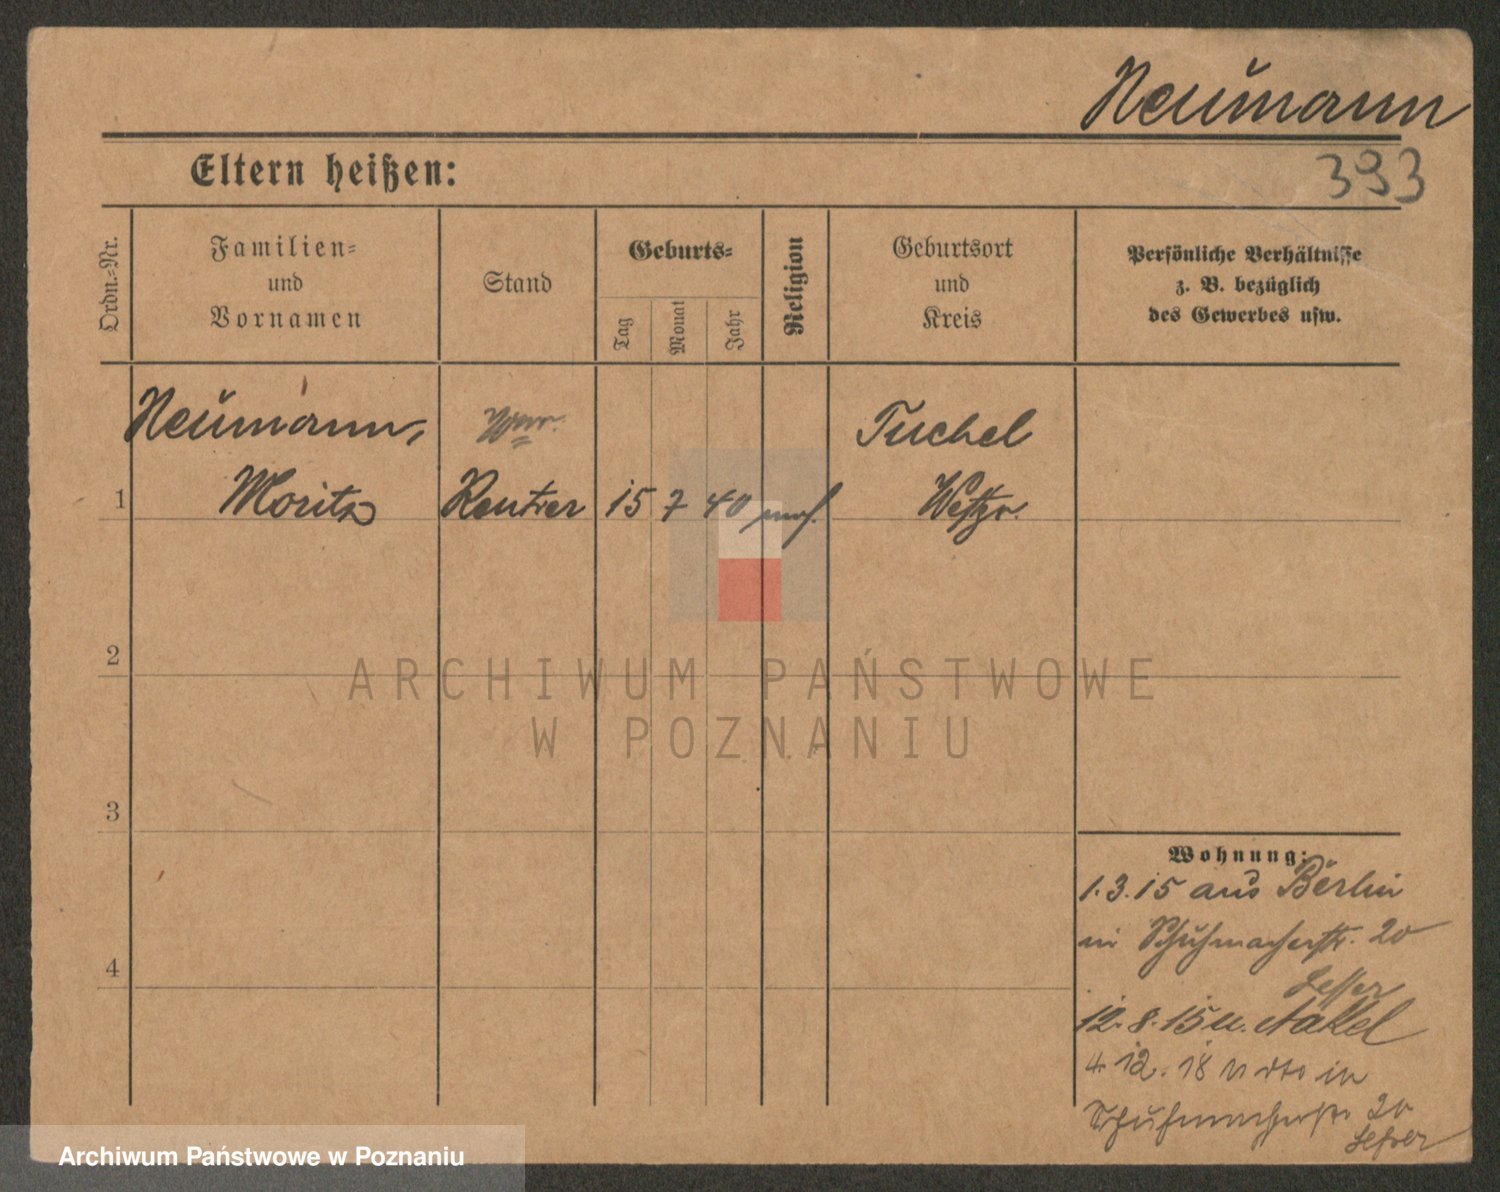 Neumann
Eltern heißen:
393
Ordn.=Nr.
Familien=
und
Vornamen
Stand
Geburts=
Tag
Monat
Jahr
Religion
Geburtsort
und
Kreis
Persönliche Verhältnisse
z. B. bezüglich
des Gewerbes usw.
Neumann,
Moritz
Rentier
15 7 40 mos.
Tuchel
Westpr.
1
2
3
4
Wohnung:
1.3.15 aus Berlin
in Schuhmacherstr. 20
Lesser
12.8.15 n. Nakel
4.12.18 v dto in
Schuhmacherstr. 20
Lesser
ARCHIWUM PAŃSTWOWE
W POZNANIU
Archiwum Państwowe w Poznaniu